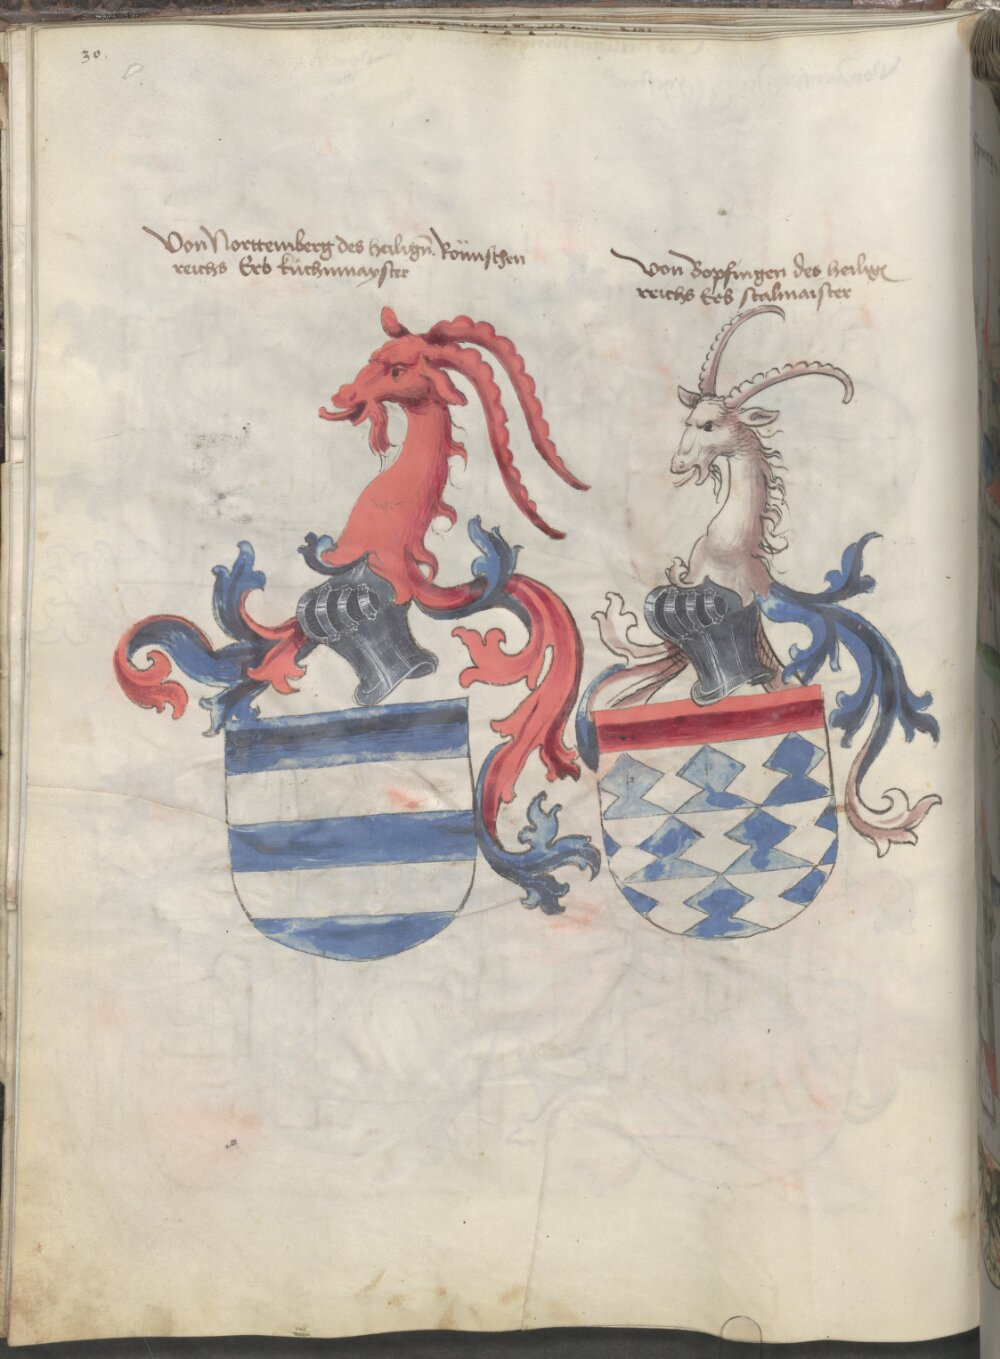 30.
Von Norttemberg des heilign̄. Römischen
reichs Erb kuchinmayster
Von Bopfingen des heilig
reichs Erb stalmaister